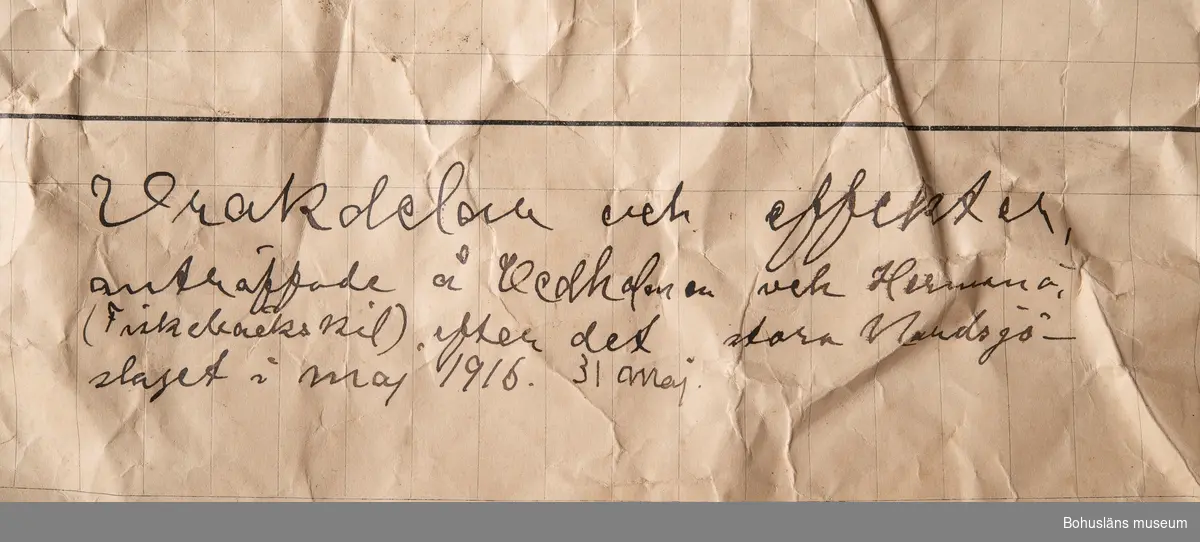 Vrakdelar och effekter,
anträffade å Vedholmen och Hermanö,
(Fiskebäckskil), efter det stora Nordsjö-
slaget i maj 1916. 31 maj.
Bohusläns museum